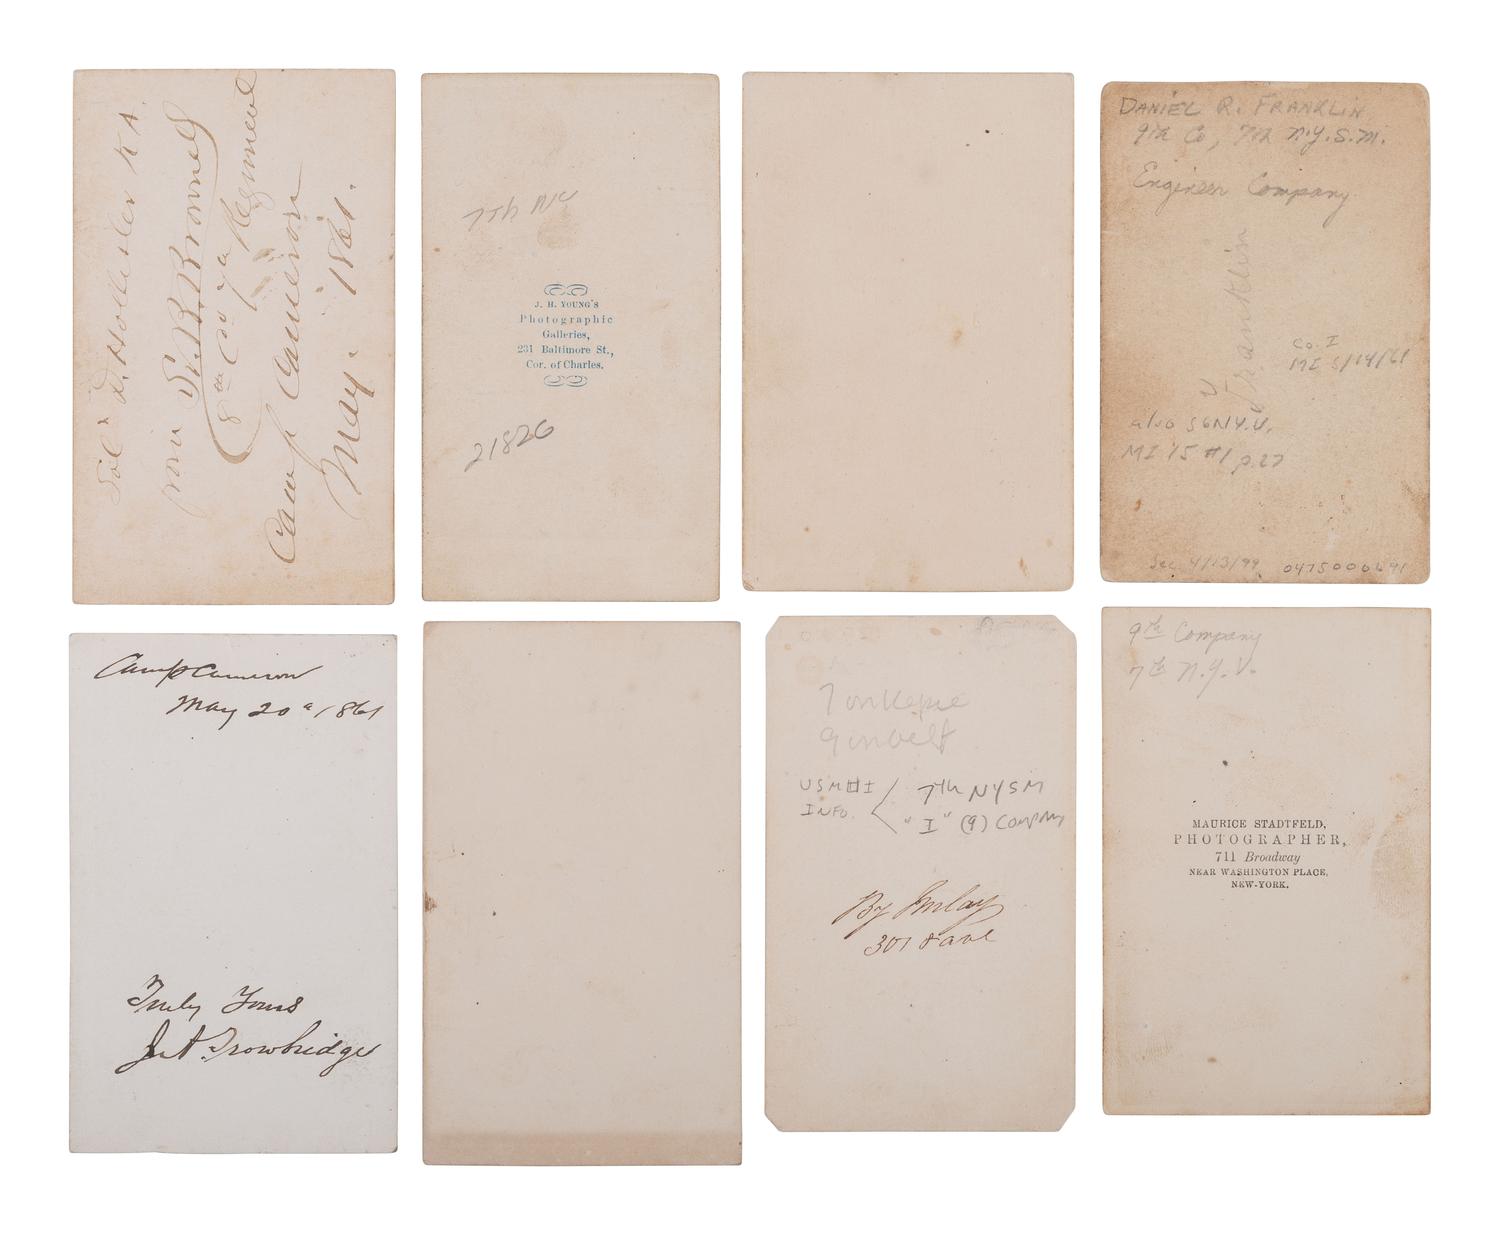 D. Hollister
from S. B. Brownell
8th Co 7th Regiment
Camp Cameron
May. 1861.
7th NY
J. H. YOUNG'S
Photographic
Galleries,
231 Baltimore St.,
Cor. of Charles.
21826
DANIEL R. FRANKLIN
9th Co, 7th N.Y.S.M.
Engineer Company
Franklin
Co. I
MI 5/14/61
also 56NY.V.
MI 15 #1 p.27
Sec 4/13/99 0475000691
Camp Cameron
May 20 1861
Truly Yours
J. A. Trowbridge
USMHI
INFO.
7th NYSM
"I" (9) Company
By Imlay
301 8 ave
9th Company
7th N.Y.V.
MAURICE STADTFELD,
PHOTOGRAPHER,
711 Broadway
NEAR WASHINGTON PLACE,
NEW-YORK.